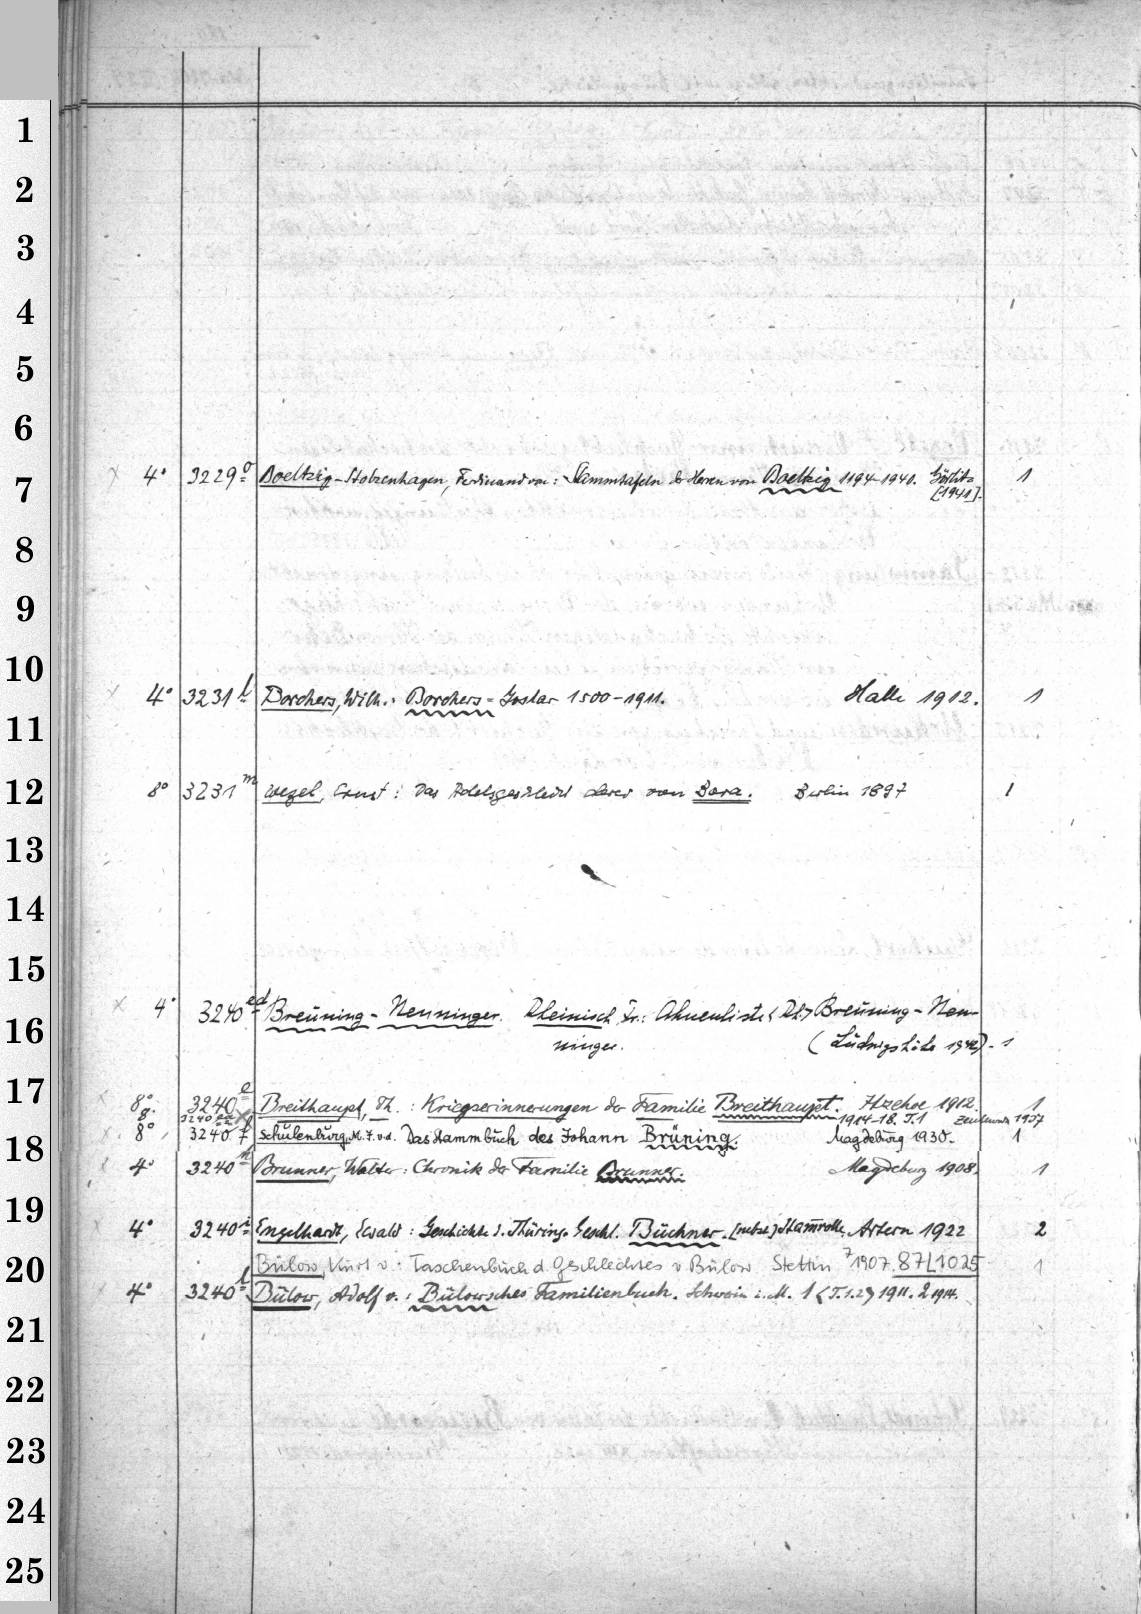 1
2
3
4
5
6
7 × 4° 3229 o Boeltzig-Stolzenhagen, Ferdinand von: Stammtafeln d. Herren von Boeltzig 1194-1941. Görlitz 1
[1941].
8
9
10
× 4° 3231 l Borchers, Wilh.: Borchers-Goslar 1500-1911. Halle 1912. 1
11
12 8° 3231 m Wezel, Ernst: Das Adelsgeschlecht derer von Bora. Berlin 1897 1
13
14
15
× 4° 3240 ed Breuning-Nenninger. Rheinisch, Fr.: Ahnenliste Breuning-Nen-
16 ninger. (Ludwigshafe 1942). 1
17
× 8° 3240 e Breithaupt, Th.: Kriegserinnerungen der Familie Breithaupt. Itzehoe 1912. 1
8° 3240 ea 1914-18. T.1 1937
18 × 8° 3240 f Schulenburg, M. F. v.d. Das Stammbuch des Johann Brüning. Magdeburg 1930. 1
× 4° 3240 h Brunner, Walter: Chronik der Familie Brunner. Magdeburg 1908. 1
19
4° 3240 i Engelhardt, Ewald: Geschichte d. Thüring. Geschl. Büchner. [nebst] Stammrolle, Artern 1922 2
20 Bülow, Kurt v.: Taschenbuch d. Geschlechtes v. Bülow. Stettin 1907. 87L1025 1
4° 3240 l Bülow, Adolf v.: Bülowsches Familienbuch. Schwerin i. M. 1 <T.1.2> 1911. 2 1914.
21
22
23
24
25